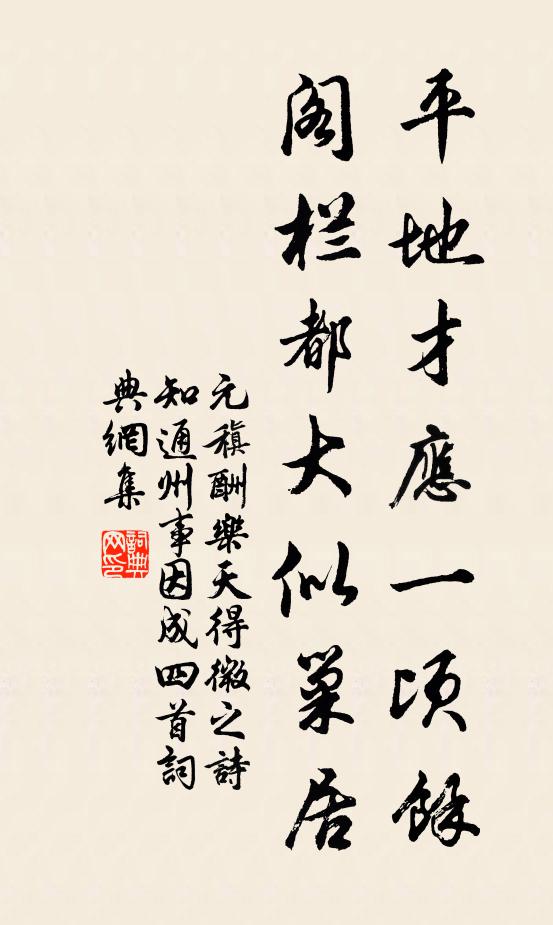 平地才應一頃餘
阁栏都大似巢居
元稹酬樂天得微之詩
知通州事因成四首詞
典網集
詞典
网印